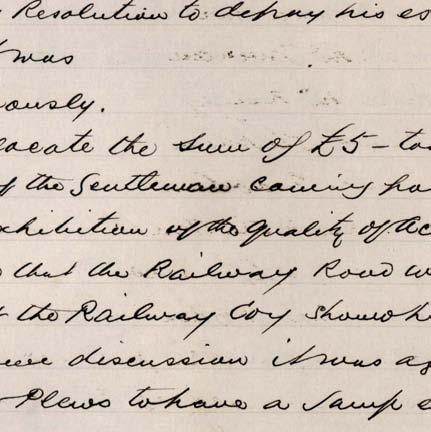 Resolution to defray his es
it was
ously.
locate the sum of £5 - to
of the Gentleman coming ho
xhibition of the quality of Ac
that the Railway Road w
t the Railway Coy should
discussion it was ag
Plews to have a Lamp e